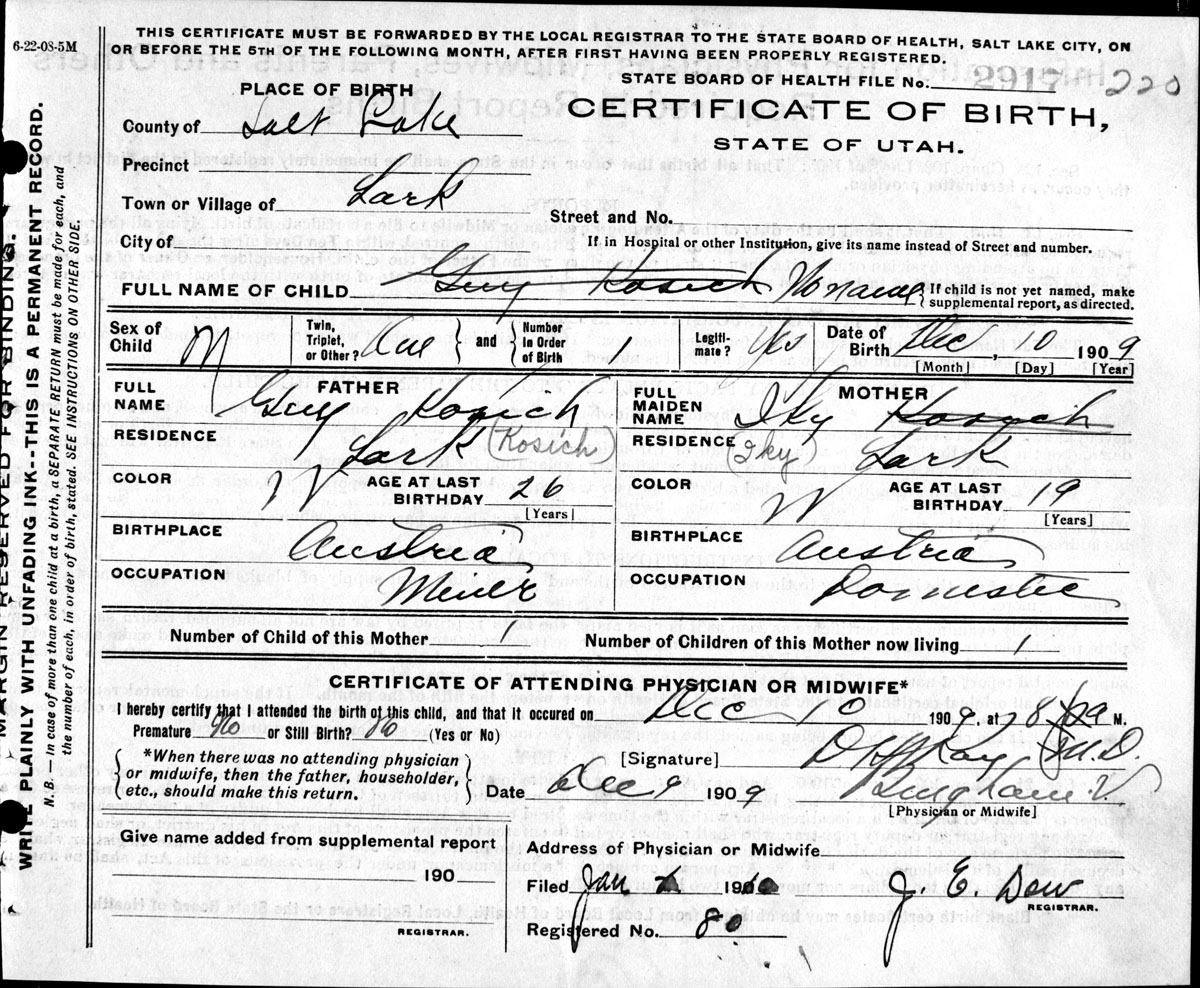 6-22-08-5M
THIS CERTIFICATE MUST BE FORWARDED BY THE LOCAL REGISTRAR TO THE STATE BOARD OF HEALTH, SALT LAKE CITY, ON
OR BEFORE THE 5TH OF THE FOLLOWING MONTH, AFTER FIRST HAVING BEEN PROPERLY REGISTERED.
STATE BOARD OF HEALTH FILE No. 2917 220
PLACE OF BIRTH
CERTIFICATE OF BIRTH,
STATE OF UTAH.
County of Salt Lake
Precinct
Town or Village of Lark
Street and No.
City of
If in Hospital or other Institution, give its name instead of Street and number.
FULL NAME OF CHILD Guy Kosich No name { If child is not yet named, make
supplemental report, as directed.
Sex of Child M Twin, Triplet, or Other? One } and { Number In Order of Birth 1 Legiti-mate? Yes Date of Birth Dec, 10 1909
[Month] [Day] [Year]
FATHER
FULL NAME Guy Kosich
RESIDENCE Lark (Kosich)
COLOR W AGE AT LAST BIRTHDAY 26
[Years]
BIRTHPLACE Austria
OCCUPATION Miner
MOTHER
FULL MAIDEN NAME Iky Kosich
RESIDENCE (Iky) Lark
COLOR W AGE AT LAST BIRTHDAY 19
[Years]
BIRTHPLACE Austria
OCCUPATION Domestic
Number of Child of this Mother 1 Number of Children of this Mother now living 1
CERTIFICATE OF ATTENDING PHYSICIAN OR MIDWIFE*
I hereby certify that I attended the birth of this child, and that it occured on Dec 10 1909, at 8 M.
Premature No or Still Birth? No (Yes or No)
{ *When there was no attending physician
or midwife, then the father, householder,
etc., should make this return. }
[Signature] Ray M.D.
Date Dec 9 1909 Bingham
[Physician or Midwife]
Give name added from supplemental report
190
REGISTRAR.
Address of Physician or Midwife
Filed Jan 190 J. E. Dow
REGISTRAR.
Registered No. 80
MARGIN RESERVED FOR BINDING.
WRITE PLAINLY WITH UNFADING INK--THIS IS A PERMANENT RECORD.
N.B.—In case of more than one child at a birth, a SEPARATE RETURN must be made for each, and
the number of each, in order of birth, stated. SEE INSTRUCTIONS ON OTHER SIDE.